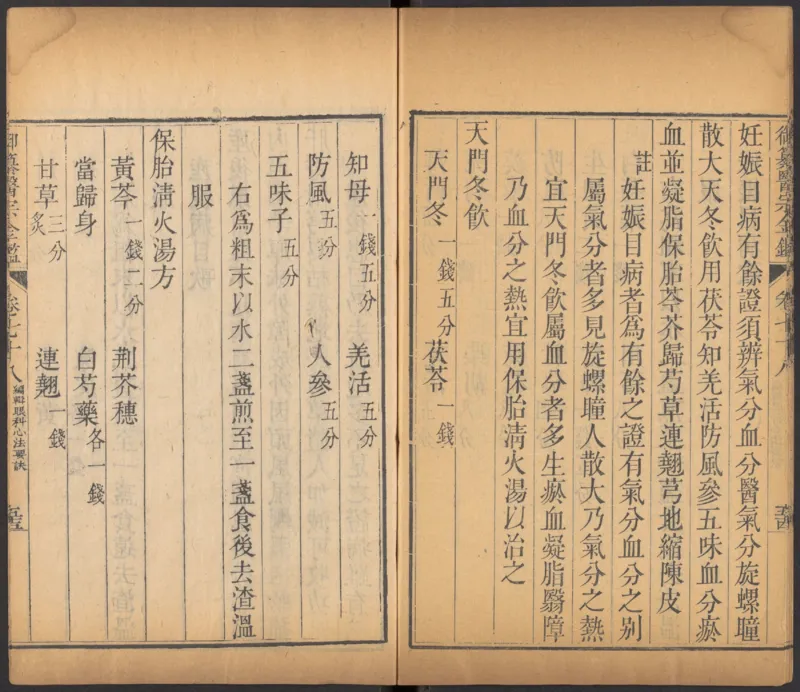 御纂醫宗金鑑 卷七十八 五十四
妊娠目病有餘證須辨氣分血分醫氣分旋螺瞳
散大天冬飲用茯苓知羌活防風參五味血分瘀
血並凝脂保胎芩芥歸芍草連翹芎地縮陳皮
註 妊娠目病者爲有餘之證有氣分血分之别
屬氣分者多見旋螺瞳人散大乃氣分之熱
宜天門冬飲屬血分者多生瘀血凝脂翳障
乃血分之熱宜用保胎淸火湯以治之
天門冬飲
天門冬一錢五分 茯苓一錢
知母一錢五分 羌活五分
防風五分 人參五分
五味子五分
右爲粗末以水二盞煎至一盞食後去渣溫
服
保胎淸火湯方
黃芩一錢二分 荆芥穗
當歸身 白芍藥各一錢
甘草三分炙 連翹一錢
御纂醫宗金鑑 卷七十八 編輯眼科心法要訣 五十五